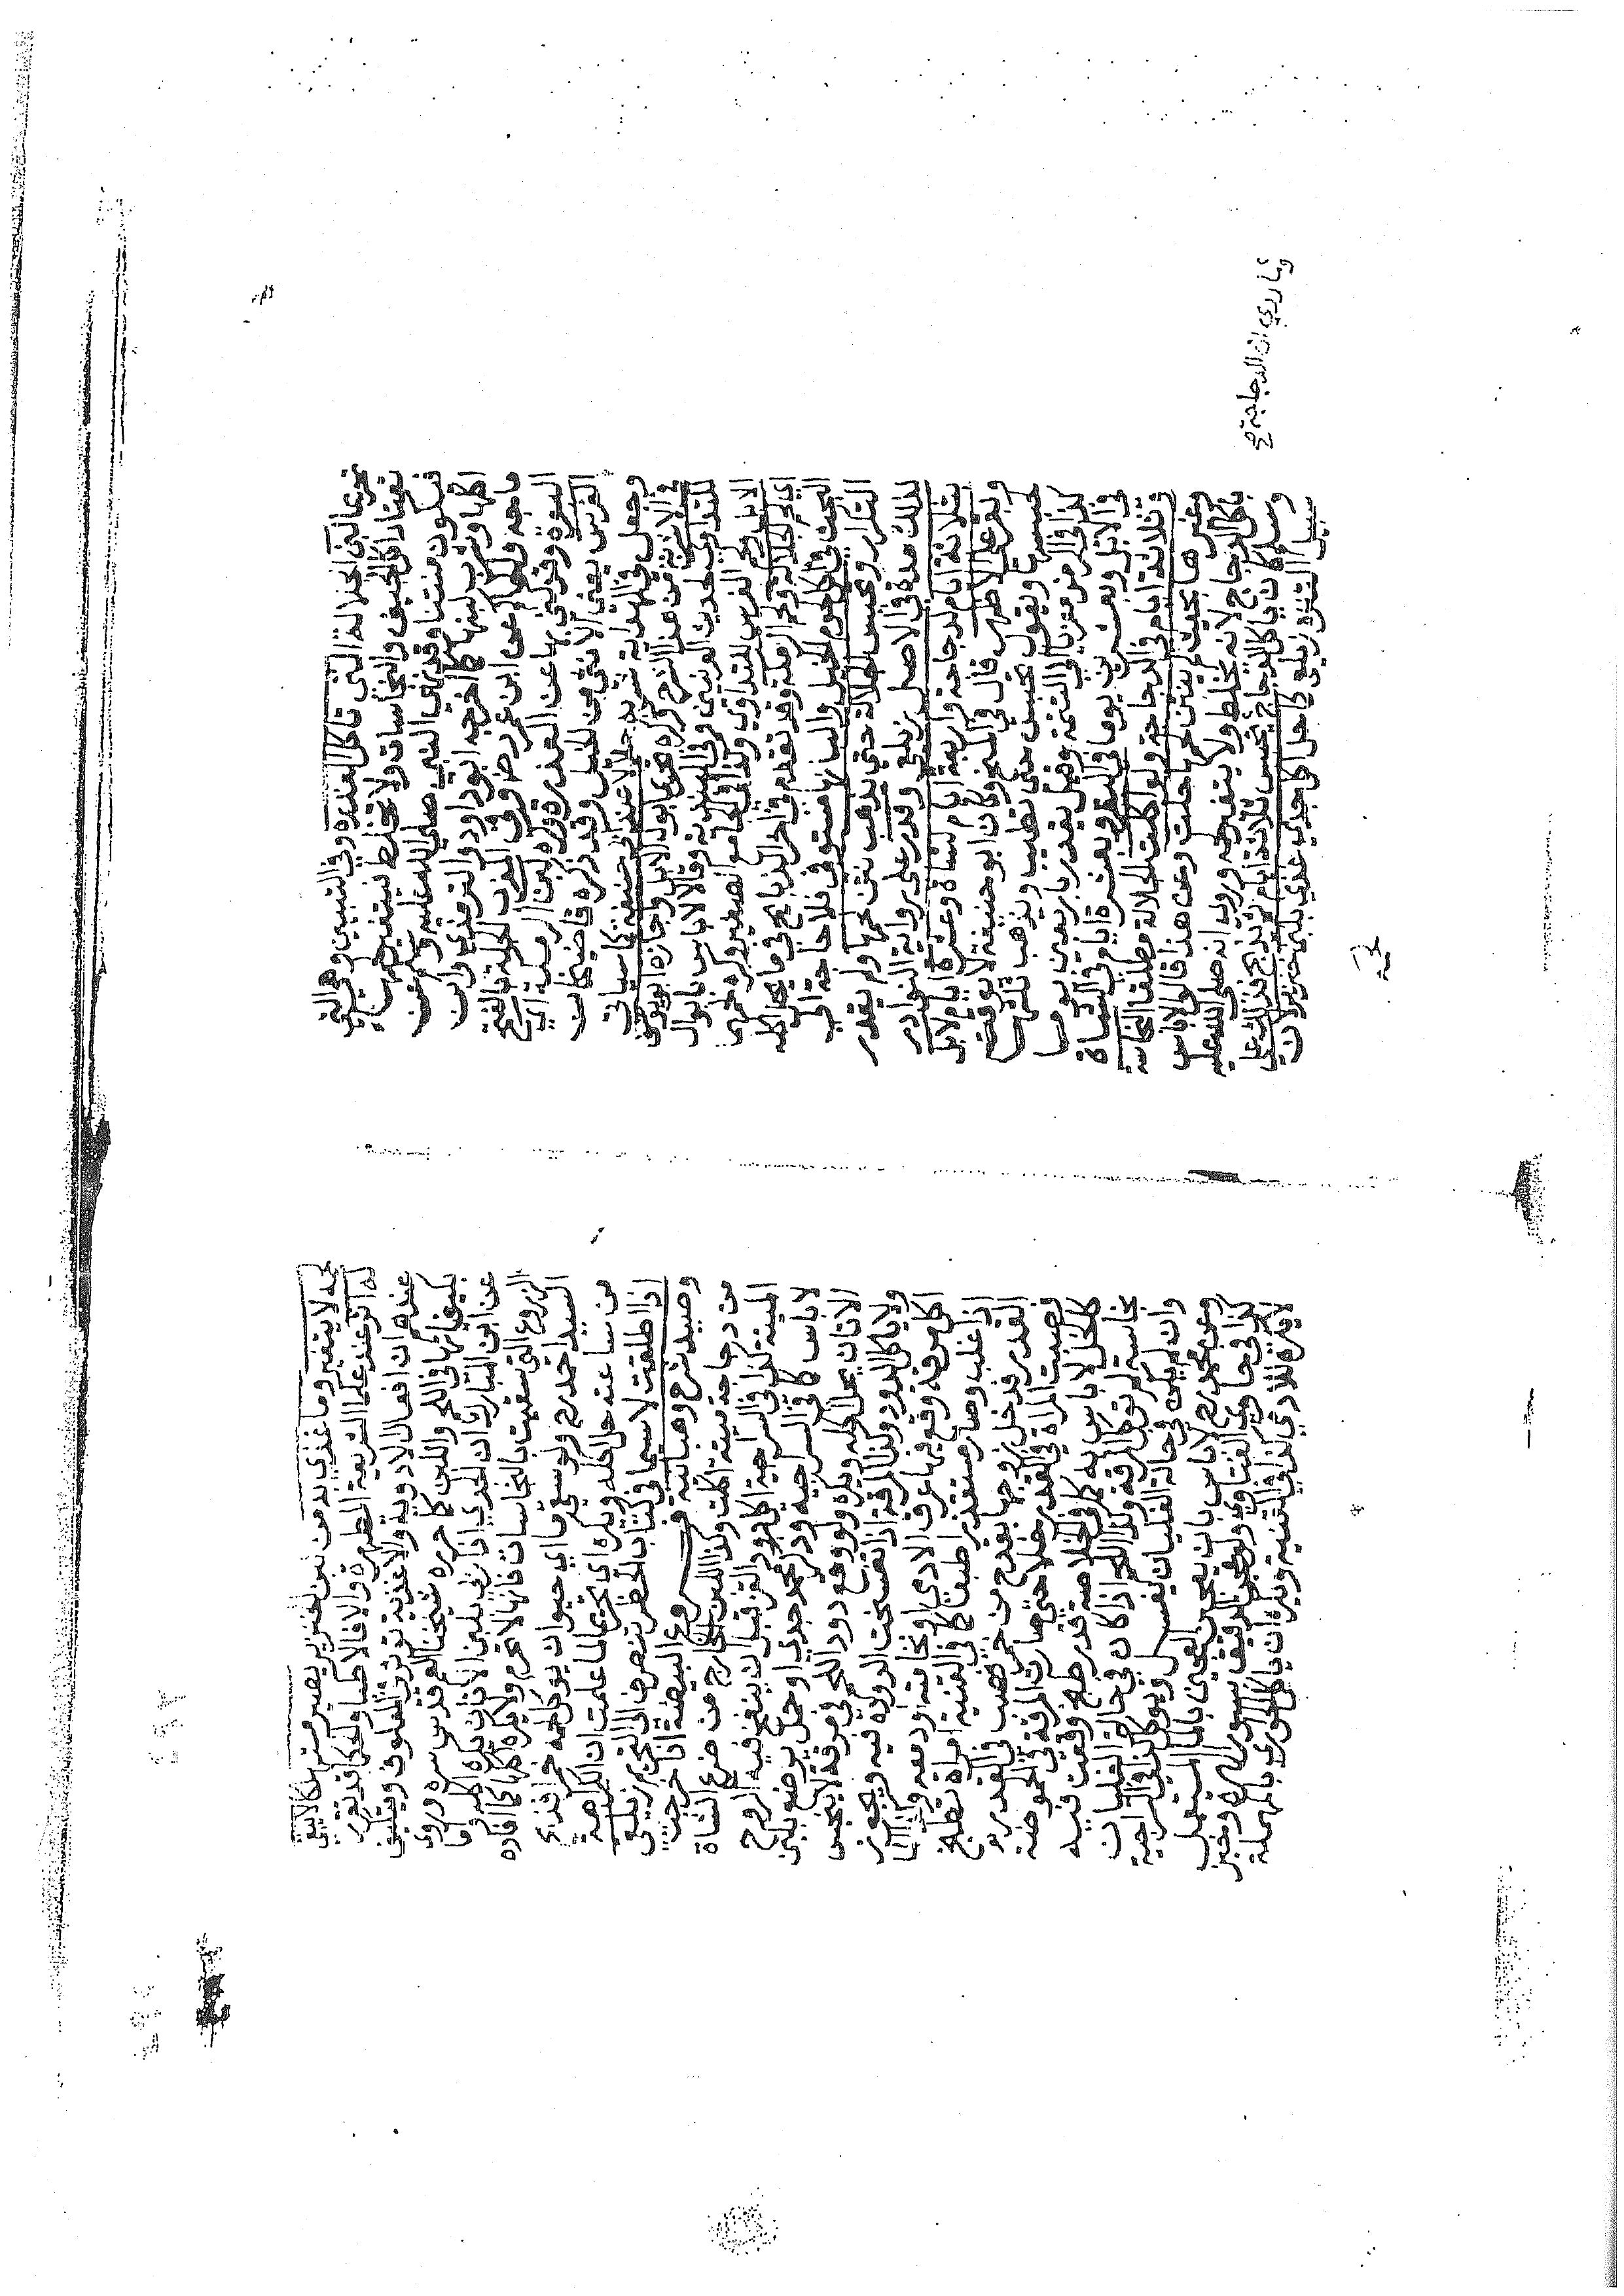 تحريما لبن الجلالة التي تاكل العذرة وفي التبيين وهي التي
تعتاد اكل الجيف والنجاسات ولا تخلط فيتغير لحمها
فيكون منتنا وقد نهي النبي صلى الله عليه وسلم عن
اكلها وشرب لبنها كما اخرجه ابو داود والترمذي وابن
ماجه والحاكم عن ابن عمر رض وفي المغرب الجلة بالفتح
البعرة وقد كني بها عن العذرة وكره لبن الرمكة اي
الفرس يعني الانثى من الخيل وقد ذكره قاضيخان
وجعل في الهداية شربه حلالا عند ابي حنيفة كما سياتي
في الاشربة من هذا الشرح وكره تحريما بول الابل واجازه ابو يوسف
للتداوي لحديث العرنيين وفي وقالا لا باس بابوال
الابل ولحم الفرس للتداوي وكذا في الجامع الصغير وكره تحريما
اي لحم الجلالة ولحم الرمكة وقد تقدم في اخر الذبايح في ما يحل اكله
البحث في لحوم الخيل والبانها مستوفي فلا حاجة الى
التكرار وتحبس الجلالة حتى يذهب نتن لحمها ولم يقدر
لذلك مدة في الاصل زيلعي وقدر على رواية النوادر
بثلاثة ايام لدجاجة واربعة ايام لشاة وعشرة ايام لابل
وبقر على الاظهر قال في المنح وكان ابو حنيفة لا يوقت
لحبسها ويقول تحبس حتى تطيب ويذهب نتنها
كذا في الرمز معزيا الى التتمة وقيل يقدر باربعين يوما
في الابل وبعشرين يوما في البقر وبعشرة ايام في الشاة
وثلاثة ايام في الدجاجة ولو اكلت الجلالة مطلقا النجاسة
وغيرها بحيث لم ينتن لحمها حلت وعن هذا قالوا لا باس
باكل الدجاج لانه يخلط ولا يتغير لحمه وروي انه صلى الله عليه
وسلم كان ياكل الدجاج تحبس ثلاثة ايام ثم تذبح فذلك على
سبيل التنزه زيلعي كما حل اكل جدي غذي بلبن خنزير لان
وما روي ان الدجاجة صح
لحمه
لحمه لا يتغير وما غذي به من لبن الخنزير يصير مستهلكا لا يبقى
له اثر عند علماء الشريعة المطهرة والا فالاطباء والحكما قد تقرر
عندهم ان افعال الادوية والاغذية تؤثر في العلوف ويبقى
بكيفياتها في اللحم واللبن كما حرره شيخنا العم قدس سره وروي
عن ابن المبارك ان الجدي اذا ربي بلبن الاتان يكره اكله وما
الزروع التي سقيت بالنجاسات فانها لا تحرم ولا يكره اكلها كما افاده
السيد احمد رح ولو سقي ما اي حيوان يوكل لحمه خمرا فذبح
من ساعته حل اكله ويكره اي تحريما لما علمت ان الكراهية
اذا اطلقت لا سيما في كتاب الحظر تنصرف الى التحريم زيلعي
وصيد شرح وهبانية فروع البيضة اذا خرجت
من دجاجة ميتة اكلت وكذا اللبن الخارج من ضرع الشاة
الميتة كذا في السراجية اكل دود القز قبل ان ينفخ فيه الروح
لا باس كما في السراجيه وذكر محمد جدي او حمل يرضع بلبن
الاتان يحل اكله ويكره ولو وقع دود اللحم في مرقة لا ينجس
ولا ياكل الدود وكذا المرقة اذا تفسخت الدودة فيه ويجوز
اكل مرقة وقع فيها عرق الادمي او نخامته او دمعه وكذا الما
اذا غلب وصار مستقذرا طبعا كما في القنية امراة تطبخ
القدر فدخل زوجها بقدح من خمر فصب في القدر
فصبت المراة في القدر خلا حتى صارت المرقة في الحموضة
كالخل لا باس به كما في الخلاصة قدر طبخ وقعت فيه
نجاسة لم توكل المرقة وكذا اللحم اذا كان في حالة الغليان
وان لم يكن في حالة الغليان يغسل ويوكل كذا في السراجية
وعن محمد رح لا باس بان يعجن العجين بالماء المستعمل
كذا في حاوي الفتاوي ولو عجن الدقيق بسور الهرة وخبز
لا يكره للادمي كذا في القنية ويكره ان ياكل